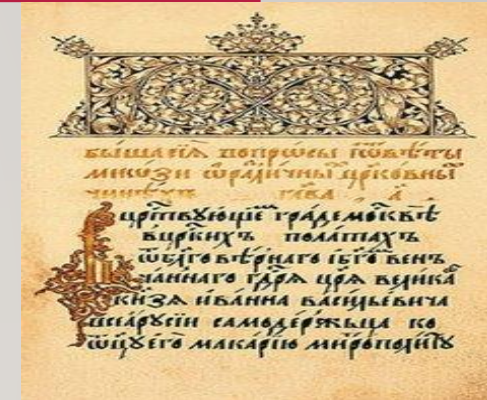 бы́ша сїѧ̀ вопрѡсы иѿвѣты
мнѡ́зи ѡразли́чны црко́вны
чинѣхъ глава а҃
вцр҃твующїе гра́де москвѣ
вцр҃кихъ полатахъ
ѿбл҃говѣрнаго ибг҃о венъ
чаннаго гдр҃ѧ цр҃ѧ велика
кн҃зѧ ива́нна васильевича
всеѧрусїи самодержьца ко
ѿц҃у его макарїю митрополиту